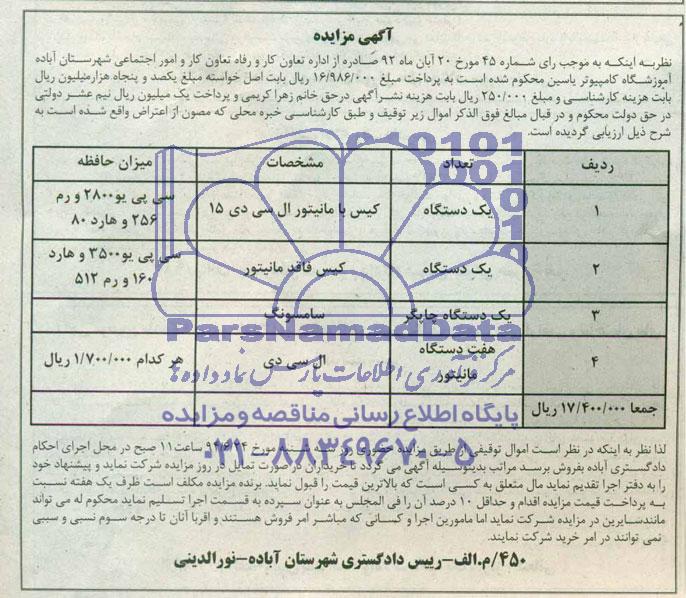 آگهی مزایده
نظربه اینکه به موجب رای شماره ۴۵ مورخ ۲۰ آبان ماه ۹۲ صادره از اداره تعاون کار و رفاه تعاون کار و امور اجتماعی شهرستان آباده
آموزشگاه کامپیوتر یاسین محکوم شده است به پرداخت مبلغ ۱۶/۹۸۶/۰۰۰ ریال بابت اصل خواسته مبلغ یکصد و پنجاه هزارمیلیون ریال
بابت هزینه کارشناسی و مبلغ ۲۵۰/۰۰۰ ریال بابت هزینه نشرآگهی درحق خانم زهرا کریمی و پرداخت یک میلیون ریال نیم عشر دولتی
در حق دولت محکوم و در قبال مبالغ فوق الذکر اموال زیر توقیف و طبق کارشناسی خبره محلی که مصون از اعتراض واقع شده است به
شرح ذیل ارزیابی گردیده است.
ردیف تعداد مشخصات میزان حافظه
۱ یک دستگاه کیس با مانیتور ال سی دی ۱۵ سی پی یو۲۸۰۰ و رم
۲۵۶ و هارد ۸۰
۲ یک دستگاه کیس فاقد مانیتور سی پی یو۳۵۰۰ و هارد
۱۶۰ و رم ۵۱۲
۳ یک دستگاه چاپگر سامسونگ
۴ هفت دستگاه
مانیتور ال سی دی هر کدام ۱/۷۰۰/۰۰۰ ریال
جمعا ۱۷/۴۰۰/۰۰۰ ریال
ParsNamadData
مرکز فرآوری اطلاعات پارس نماد داده ها
پایگاه اطلاع رسانی مناقصه و مزایده
۰۲۱-۸۸۳۴۹۶۷۰-۵
لذا نظر به اینکه در نظر است اموال توقیفی از طریق مزایده حضوری روز مورخ ساعت۱۱ صبح در محل اجرای احکام
دادگستری آباده بفروش برسد مراتب بدینوسیله آگهی می گردد تا خریداران در صورت تمایل در روز مزایده شرکت نماید و پیشنهاد خود
را به دفتر اجرا تقدیم نماید مال متعلق به کسی است که بالاترین قیمت را قبول نماید. برنده مزایده مکلف است ظرف یک هفته نسبت
به پرداخت قیمت مزایده اقدام و حداقل ۱۰ درصد آن را فی المجلس به عنوان سپرده به قسمت اجرا تسلیم نماید محکوم له می تواند
مانندسایرین در مزایده شرکت نماید اما مامورین اجرا و کسانی که مباشر امر فروش هستند و اقربا آنان تا درجه سوم نسبی و سببی
نمی توانند در امر خرید شرکت نمایند.
۴۵۰/م.الف-رییس دادگستری شهرستان آباده-نورالدینی